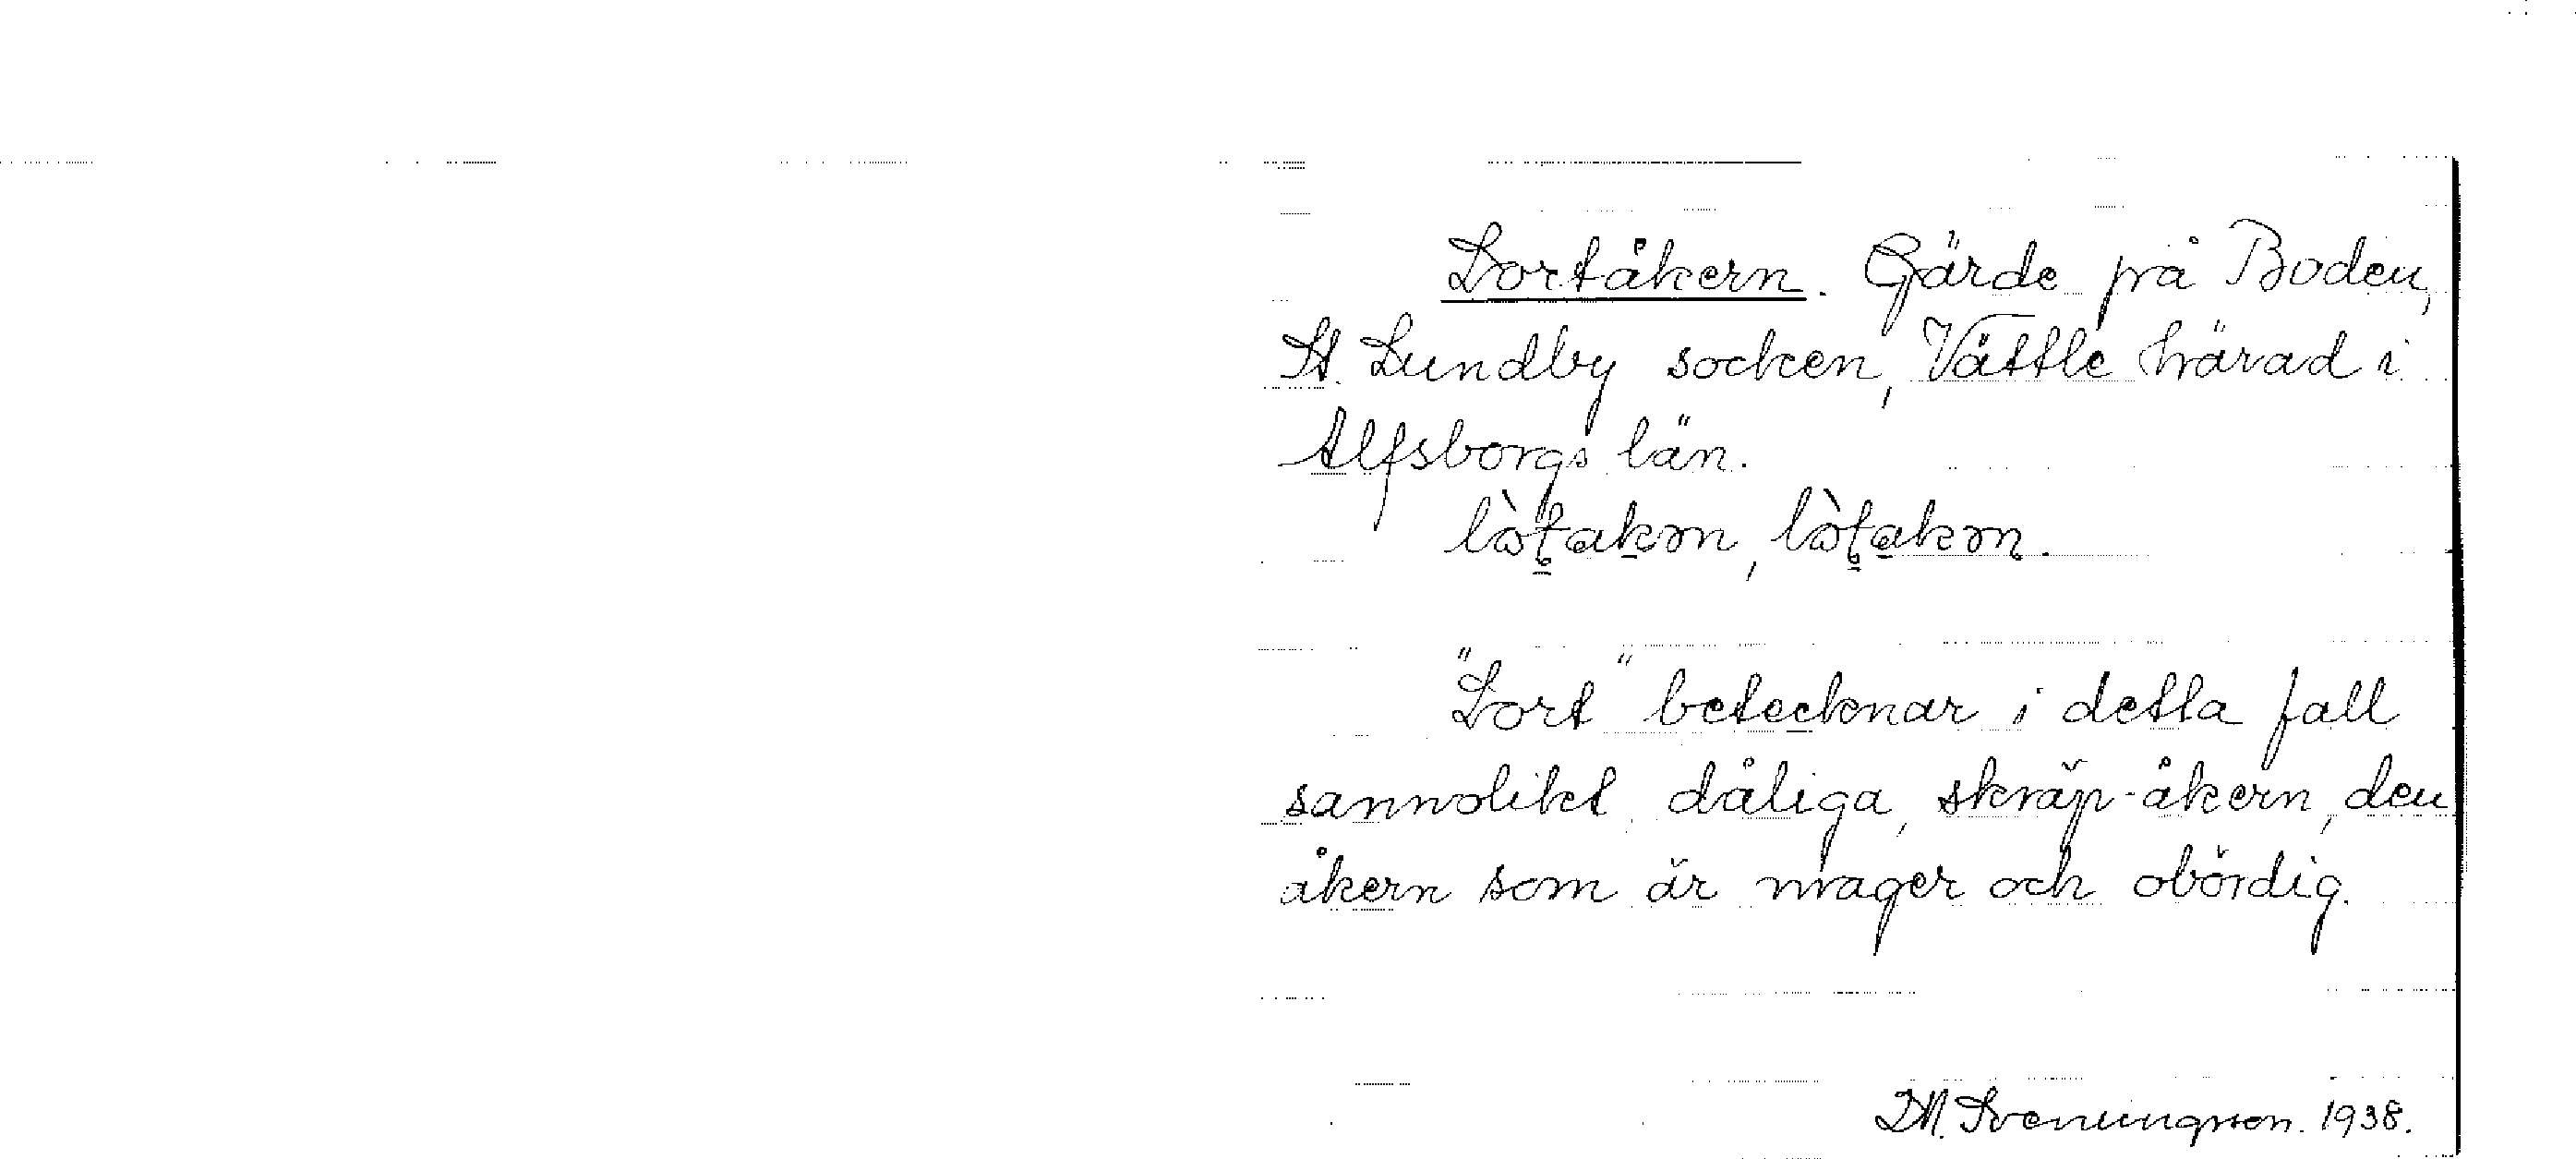 Lortåkern. Gärde på Boden,
St. Lundby socken, Vättle härad i
Alfsborgs län.
"Lort" betecknar i detta fall
sannolikt dåliga, skräp-åkern, den
åkern som är mager och obördig.
I.M. Svenungsson. 1938.